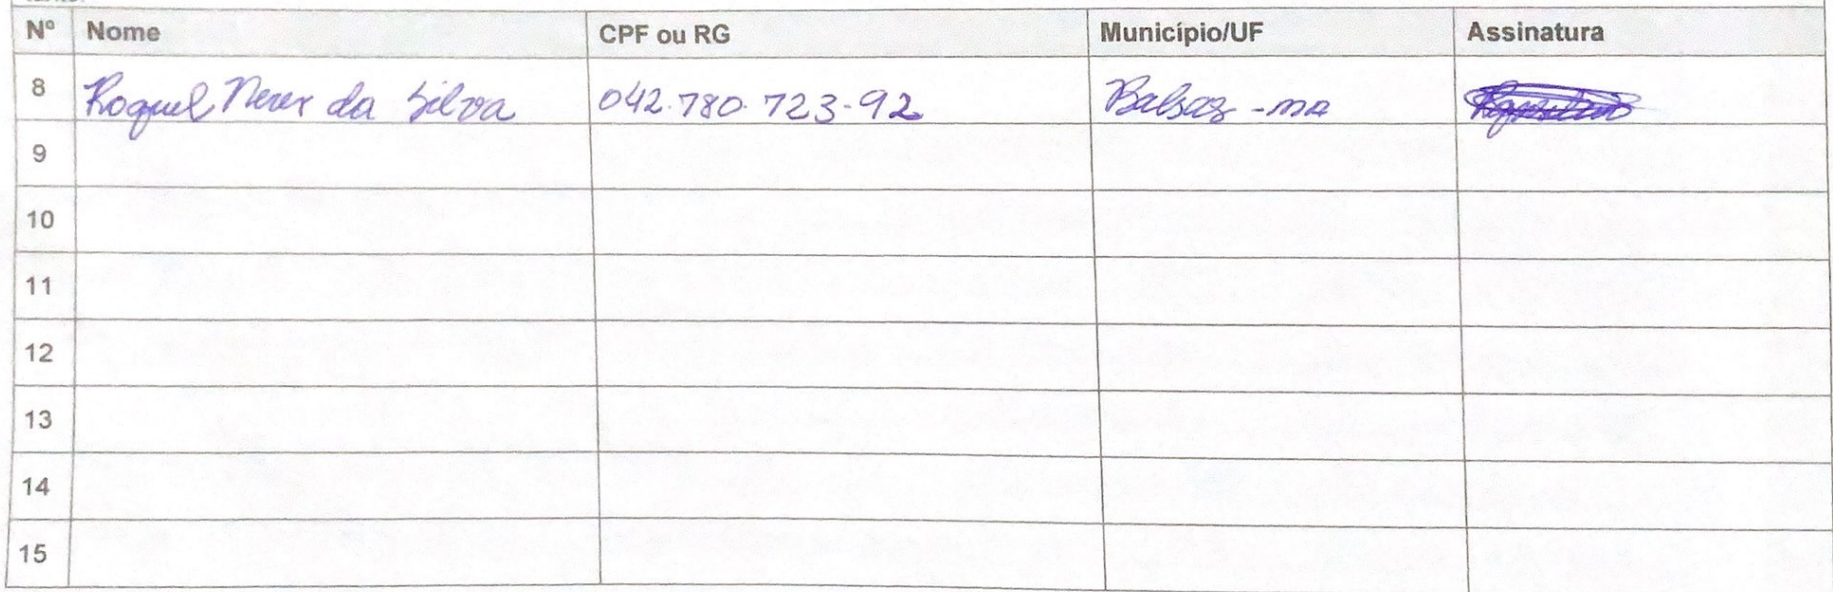 Nº Nome CPF ou RG Município/UF Assinatura
8 Raquel Neres da Silva 042.780.723-92 Balsas - MA
9
10
11
12
13
14
15